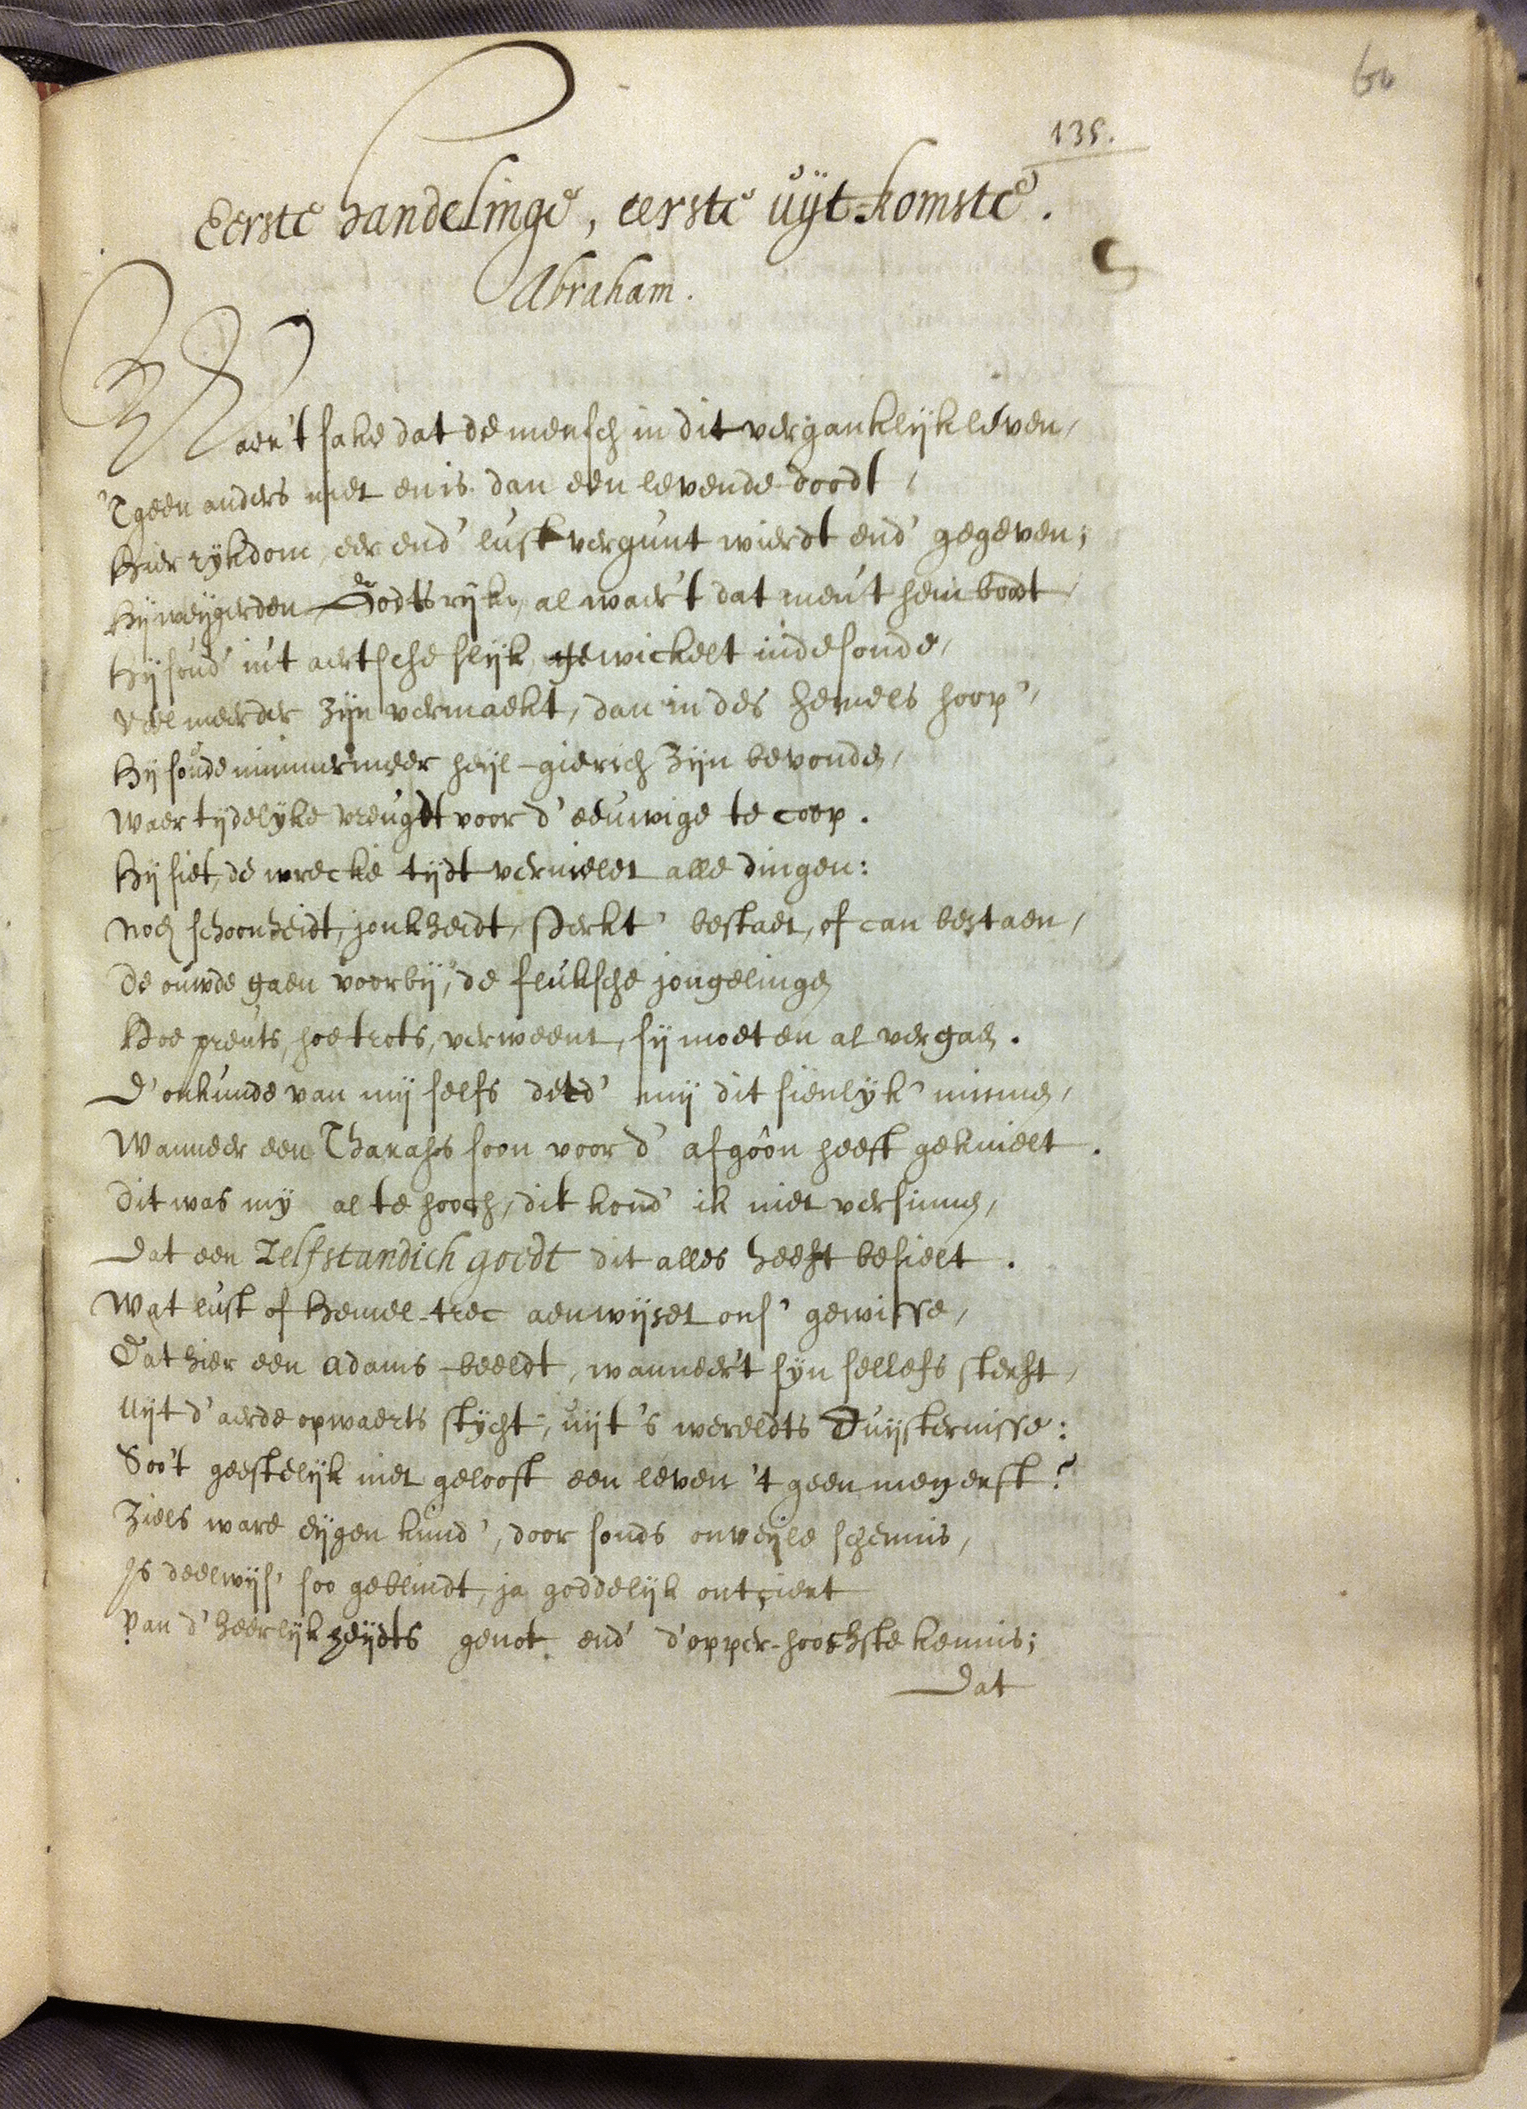 60
135.
Eerste handelinge, eerste uÿt-komste.
Abraham.
Waer't sake dat de mensch in dit verganklijk leven,
'Tgeen anders niet en is dan een levende doodt,
Hier rykdom, eer end' lust vergunt wierdt end' gegeven;
Hij weijgerden Godts rijke, al waer't dat men't hem boodt,
Hij soud' in't aertsche slijk, gewickelt inde sonde,
Veel meerder zijn vermaekt, dan in des hemels hoop',
Hij soude nimmermeer heijl-gierich zijn bevonden,
Waer tijdelyke vreugdt voor d' eeuwige te coop.
Hij siet, de wrecke tijdt vernielet alle dingen:
Noch schoonheidt, jonkheidt, sterkt' bestaet, of can bestaen,
De ouwde gaen voorbij, de fluksche jongelingen
Hoe preuts, hoe trots, verweent, sij moeten al vergaen.
D' onkunde van mij selfs deed' mij dit sienlyk' minnen,
Wanneer een Tharahs soon voor d' afgôon heeft geknielt.
Dit was mij al te hooch, dit kond' ik niet versinnen,
Dat een zelfstandich goedt dit alles heeft besielt.
Wat lust of Hemel-trec aenwijset ons' gewisse,
Dat hier een Adams-beeldt, wanneer't sijn sellefs sterft,
Uijt d'aerde opwaerts stijcht, uijt 's werelts duijsternisse:
Soo't geestelijk niet gelooft een leven 't geen men erft?
Ziels ware eijgen kund', door sonds onveijle schennis,
Is deelwijs' soo geblindt, ja goddelijk ontçiert
Van d'heerlijkheijdts genot end' d'opper-hoochste kennis;
Dat